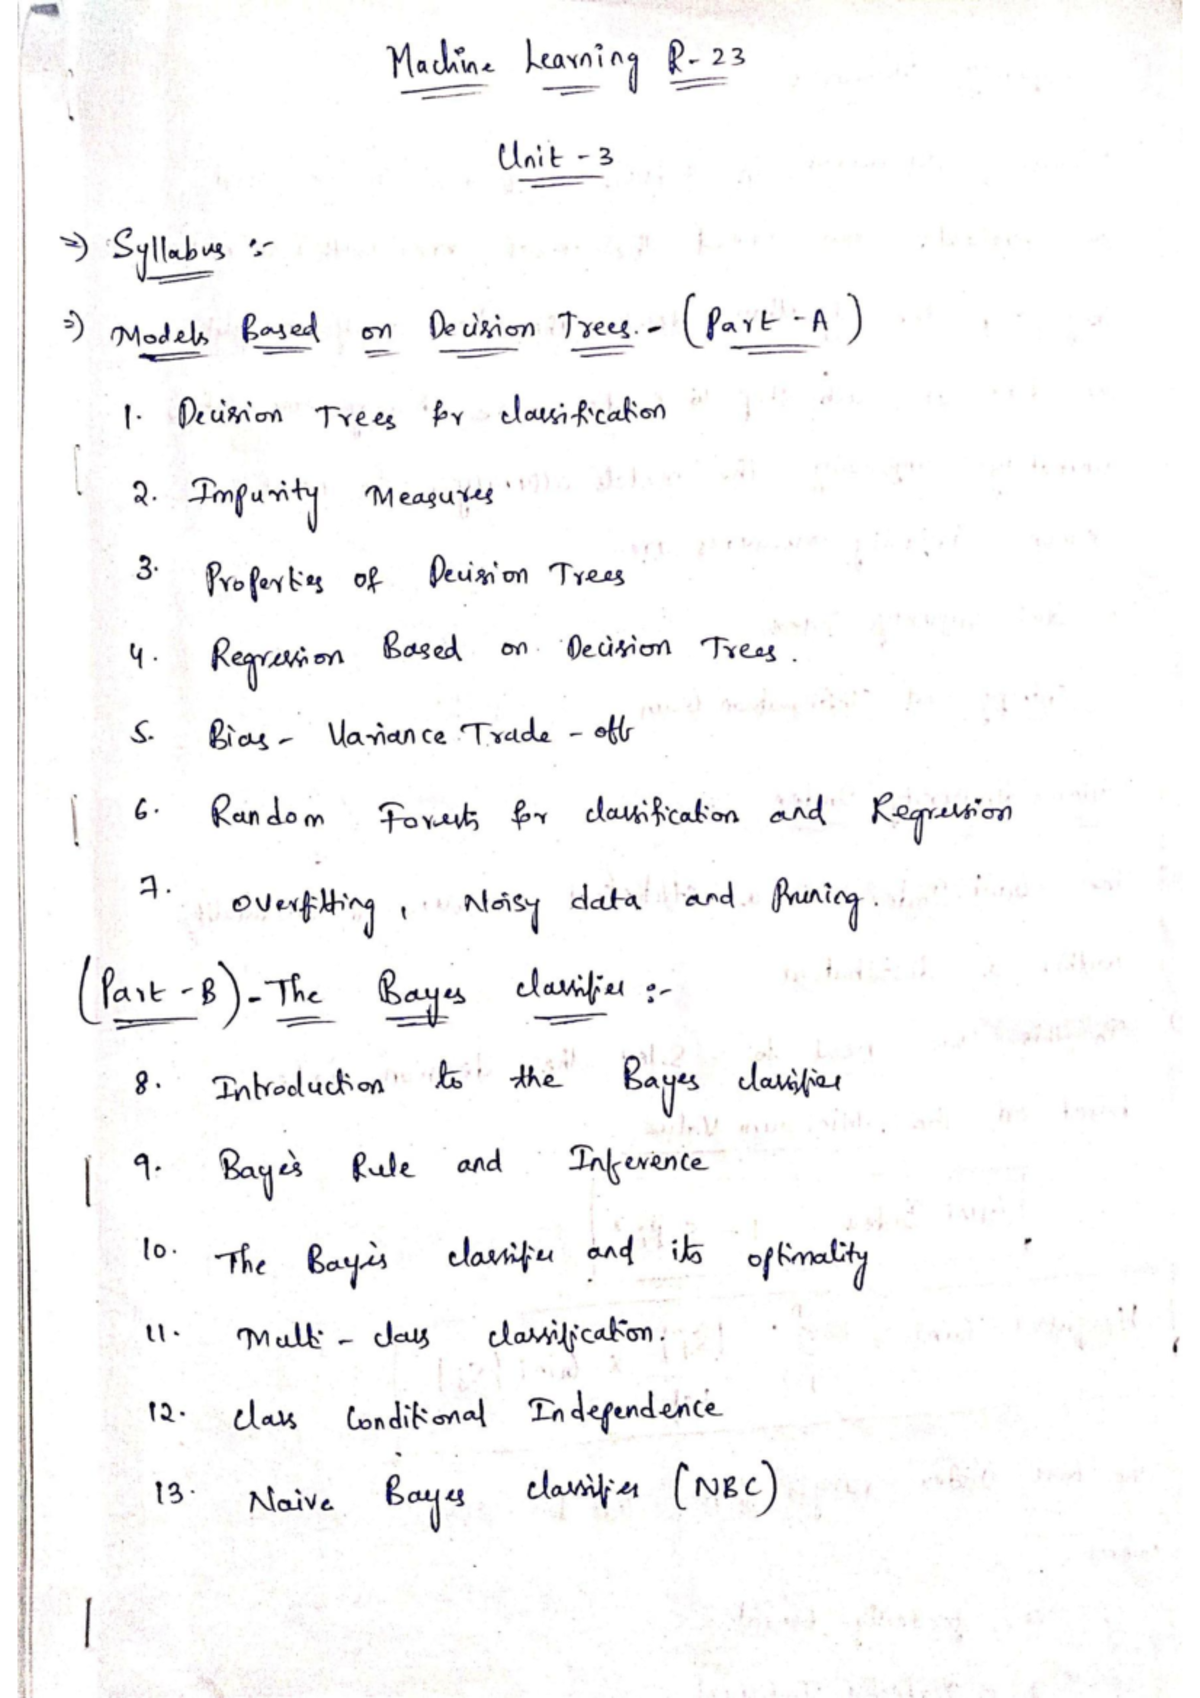 Machine Learning R-23
Unit - 3
=) Syllabus :-
=) Models Based on Decision Trees. - (Part - A)
1. Decision Trees for classification
2. Impurity Measures
3. Properties of Decision Trees
4. Regression Based on Decision Trees.
5. Bias - Variance Trade - off
6. Random Forests for classification and Regression
7. Overfitting, Noisy data and Pruning.
(Part - B) - The Bayes classifier :-
8. Introduction to the Bayes classifier
9. Baye's Rule and Inference
10. The Baye's classifier and its optimality
11. Multi - class classification.
12. class Conditional Independence
13. Naive Bayes classifier (NBC)